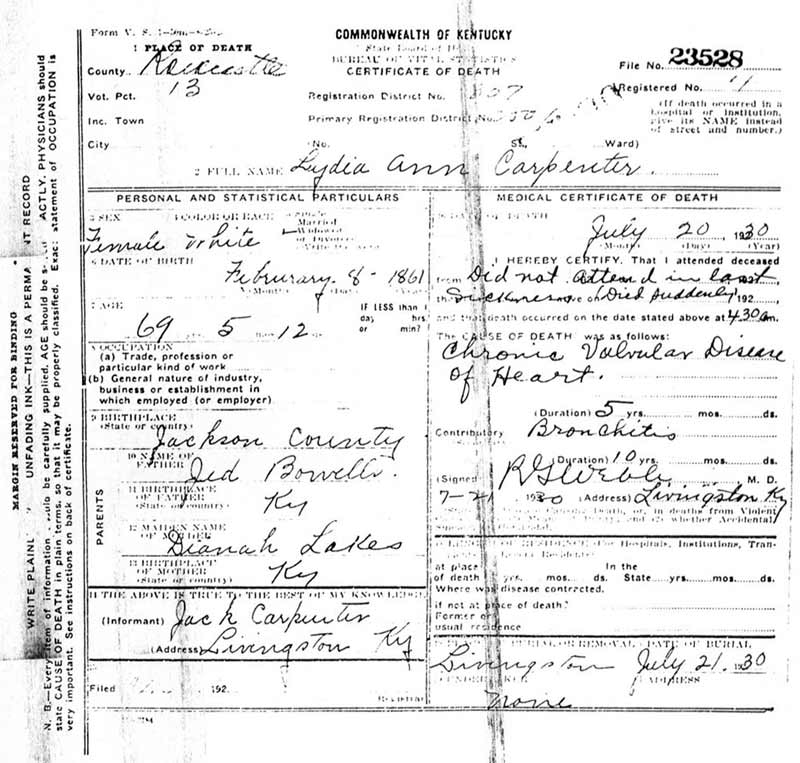 Form V. S.
COMMONWEALTH OF KENTUCKY
1 PLACE OF DEATH
State Board of
BUREAU OF VITAL STATISTICS
CERTIFICATE OF DEATH
File No. 23528
County Rockcastle
Vot. Pct. 13
Registration District No.
Registered No.
Inc. Town
Primary Registration District No.
(If death occurred in a
hospital or institution,
give its NAME instead
of street and number.)
City
No.
St.,
Ward)
2 FULL NAME Lydia Ann Carpenter
PERSONAL AND STATISTICAL PARTICULARS
3 SEX
4 COLOR OR RACE
5 Single
Married
Widowed
or Divorced
Female White
6 DATE OF BIRTH
Februrary 8 - 1861
(Month) (Day) (Year)
7 AGE
IF LESS than 1
day, hrs
or min?
69 yrs. 5 mos. 12 ds.
8 OCCUPATION
(a) Trade, profession or
particular kind of work
(b) General nature of industry,
business or establishment in
which employed (or employer)
9 BIRTHPLACE
(State or country)
Jackson County
PARENTS
10 NAME OF
FATHER
Jed Bowells
11 BIRTHPLACE
OF FATHER
(State or country)
Ky
12 MAIDEN NAME
OF MOTHER
Dianah Lakes
13 BIRTHPLACE
OF MOTHER
(State or country)
Ky
14 THE ABOVE IS TRUE TO THE BEST OF MY KNOWLEDGE
(Informant) Jack Carpenter
(Address) Livingston Ky
Filed 192
Registrar
MEDICAL CERTIFICATE OF DEATH
DATE OF DEATH
July 20 1930
(Month) (Day) (Year)
I HEREBY CERTIFY, That I attended deceased
from Did not attend in last
Sickness alive on Died Suddenly 192
and that death occurred on the date stated above at 4 30 am.
The CAUSE OF DEATH was as follows:
Chronic Valvular Disease
of Heart.
(Duration) 5 yrs. mos. ds.
Contributory Bronchitis
(Duration) 10 yrs. mos. ds.
(Signed) M. D.
7-21 1930 (Address) Livingston Ky
Causing Death, or, in deaths from Violent
whether Accidental
LENGTH OF RESIDENCE (For Hospitals, Institutions, Tran-
at place In the
of death yrs. mos. ds. State yrs. mos. ds.
Where was disease contracted,
if not at place of death?
Former or
usual residence
PLACE OF BURIAL OR REMOVAL DATE OF BURIAL
Livingston July 21 1930
UNDERTAKER ADDRESS
None
MARGIN RESERVED FOR BINDING
WRITE PLAINLY UNFADING INK—THIS IS A PERMANENT RECORD
N. B.—Every item of information should be carefully supplied. AGE should be stated EXACTLY. PHYSICIANS should
state CAUSE OF DEATH in plain terms, so that it may be properly classified. Exact statement of OCCUPATION is
very important. See instructions on back of certificate.